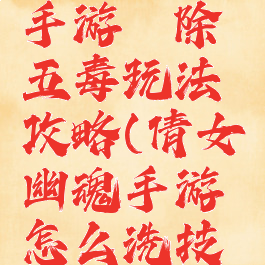 手游 除
五毒玩法
攻略(倩女
幽魂手游
怎么洗技